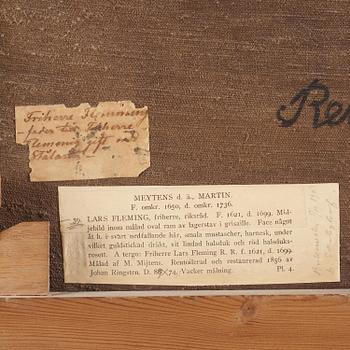 Friherre Flemming
fader till Friherre
Flemming gift med
Ren
MEYTENS d. ä., MARTIN.
F. omkr. 1650, d. omkr. 1736.
LARS FLEMING, friherre, riksråd. F. 1621, d. 1699. Mid-
jebild inom målad oval ram av lagerstav i grisaille. Face något
åt h. i svart nedfallande hår, smala mustascher, harnesk, under
vilket guldstickad dräkt, vit lindad halsduk och röd halsduks-
rosett. A tergo: Friherre Lars Fleming R. R. f. 1621, d. 1699.
Målad af M. Mijtens. Rentoilerad och restaurerad 1856 av
Johan Ringsten. D. 89×74. Vacker målning. Pl. 4.